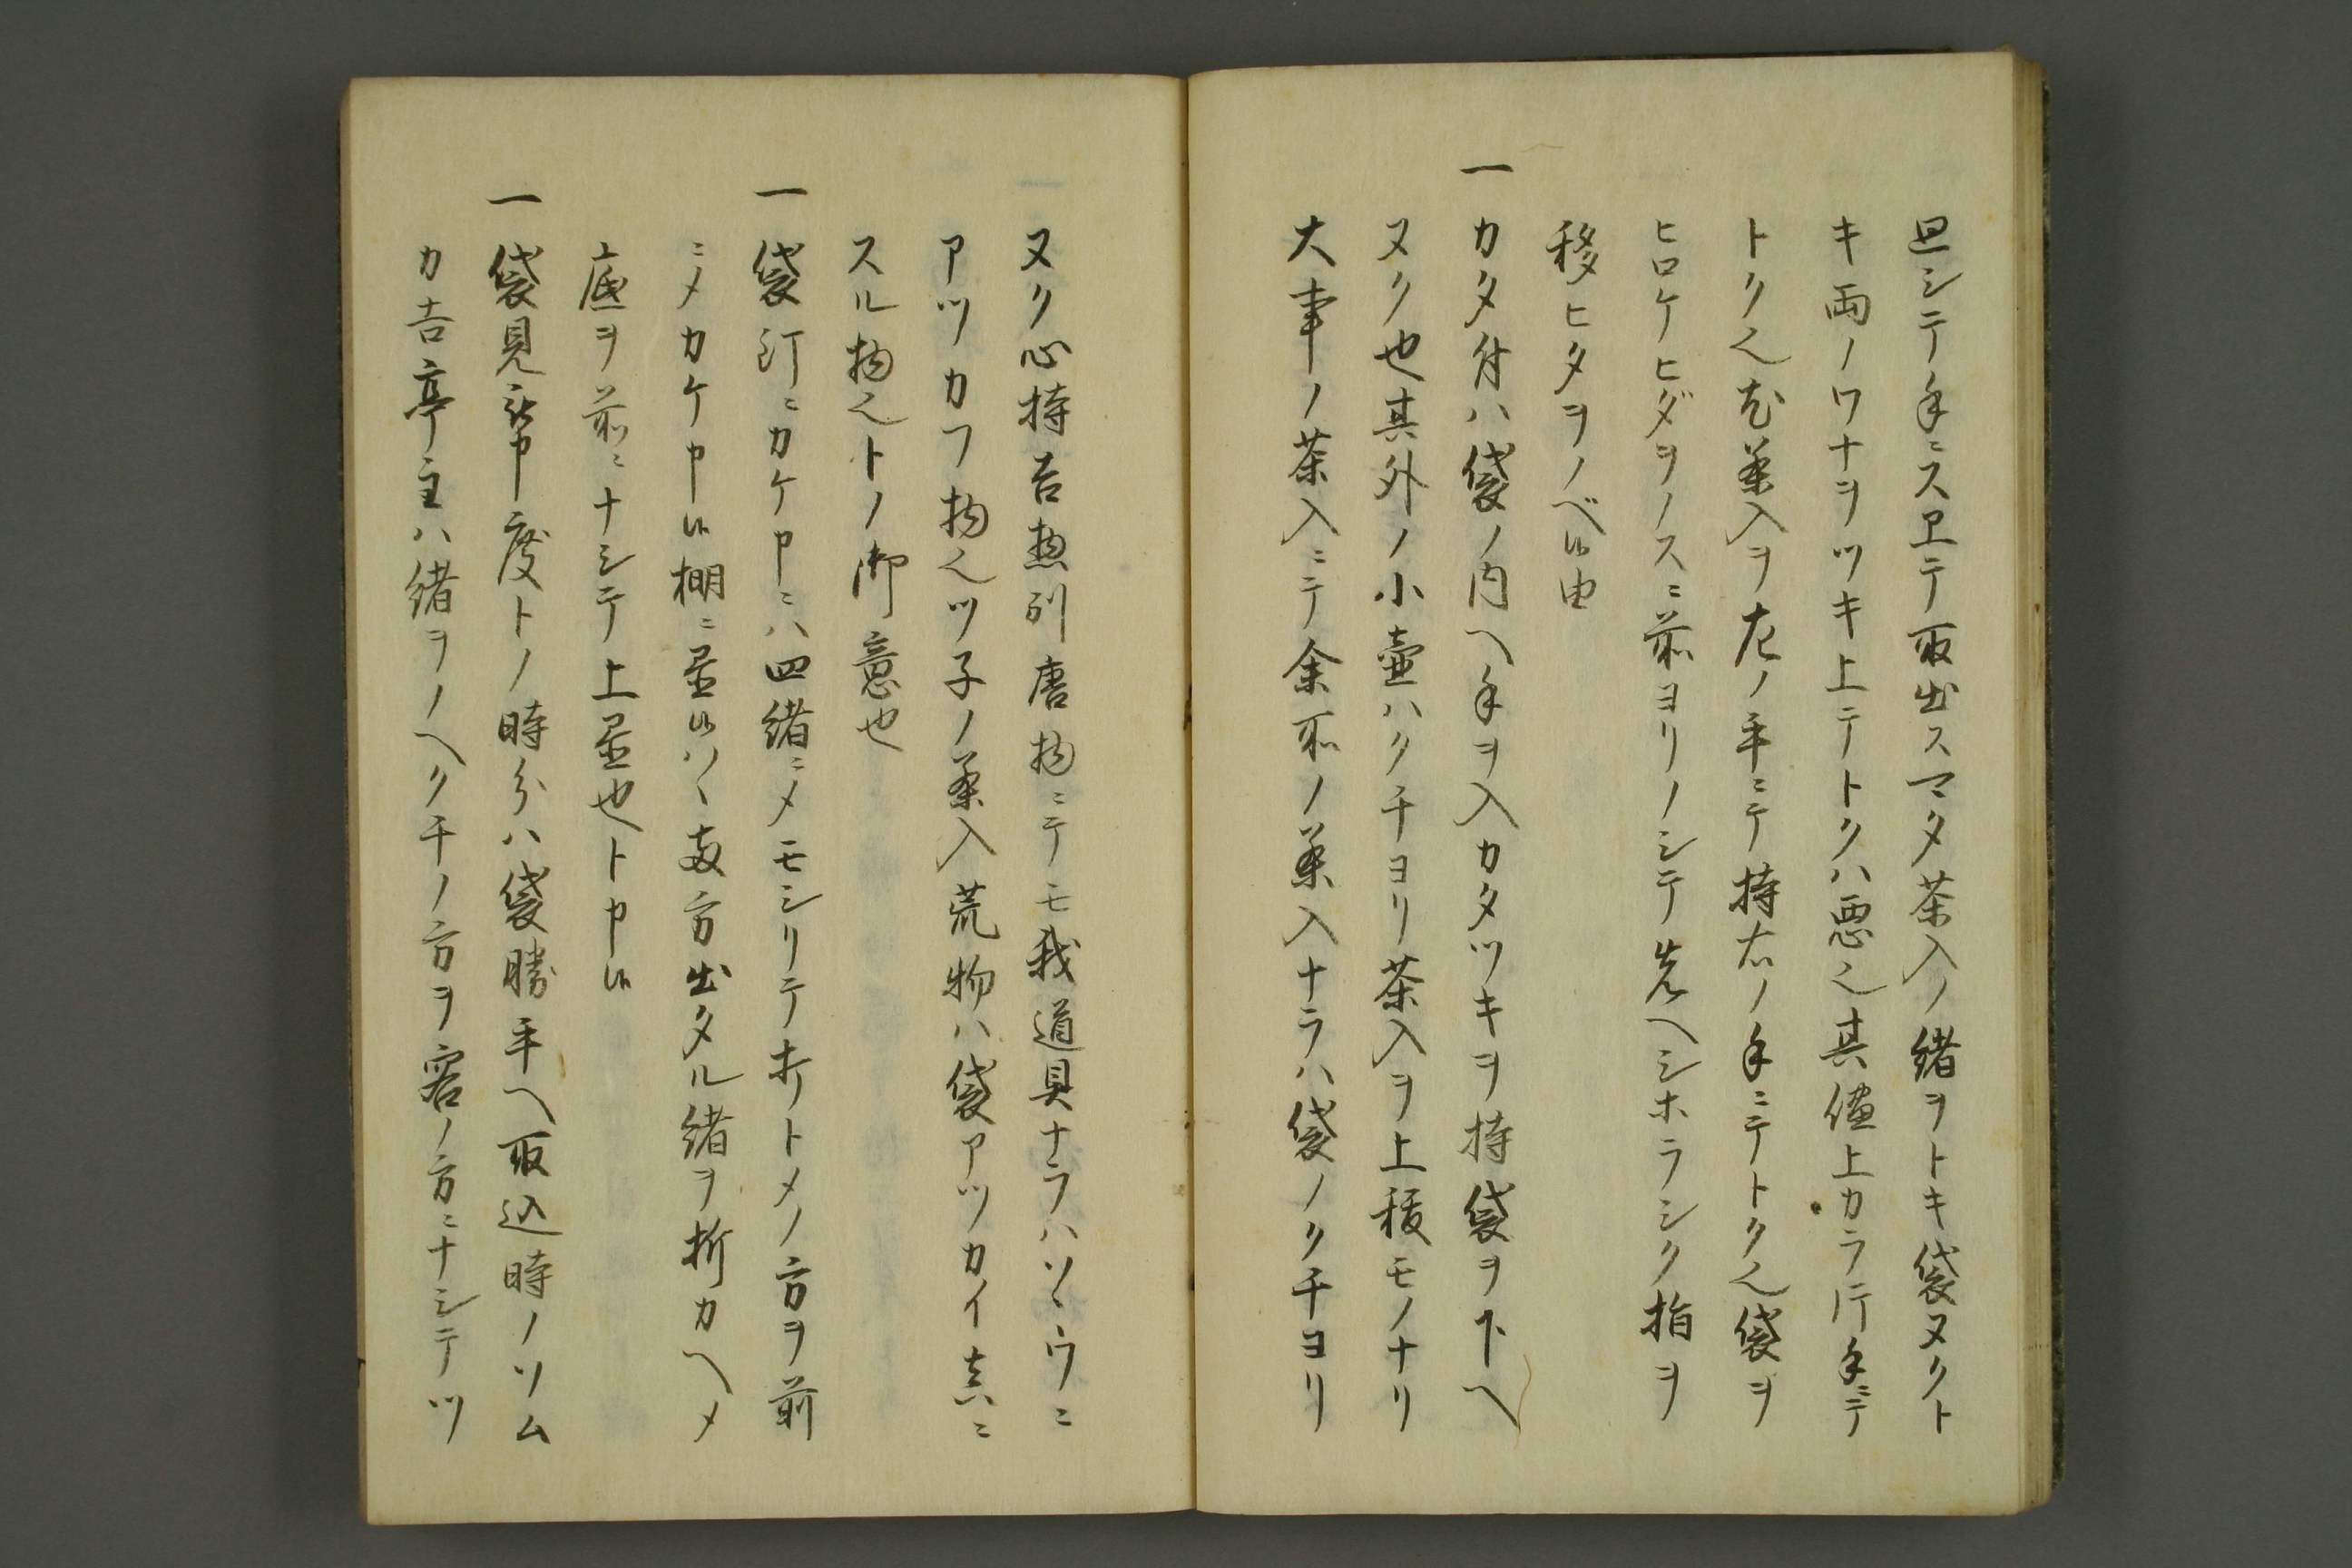 シテ手ニスヱテ取出スマタ茶入ノ緒ヲトキ袋ヌクト
キ両ノワナヲツキ上テトクハ悪之其儘上カラ片手ニテ
トク之尤茶入ヲ左ノ手ニテ持右ノ手ニテトク之袋ヲ
ヒロケヒダヲノスニ前ヨリノシテ先ヘシホラシク指ヲ
移ヒタヲノベ候由
一カタ付ハ袋ノ内ヘ手ヲ入カタツキヲ持袋ヲ下ヘ
ヌク也其外ノ小壷ハクチヨリ茶入ヲ上ル モノナリ
大事ノ茶入ニテ余所ノ茶入ナラハ袋ノクチヨリ
ヌク心持吉惣別唐物ニテモ我道具ナラハソヽウニ
アツカフ物之ツ子ノ茶入荒物ハ袋アツカイ真ニ
スル物之トノ御意也
一袋釘ニカケ申ニハ四緒ニメモシリテ打トメノ方ヲ前
ニメカケ申候棚ニ置候ハヽ両方出タル緒ヲ折カヘメ
底ヲ前ニナシテ上置也ト申候
一袋見 申度トノ時分ハ袋勝手ヘ取込時ノソム
カ吉亭主ハ緒ヲノヘクチノ方ヲ客ノ方ニナシテツ